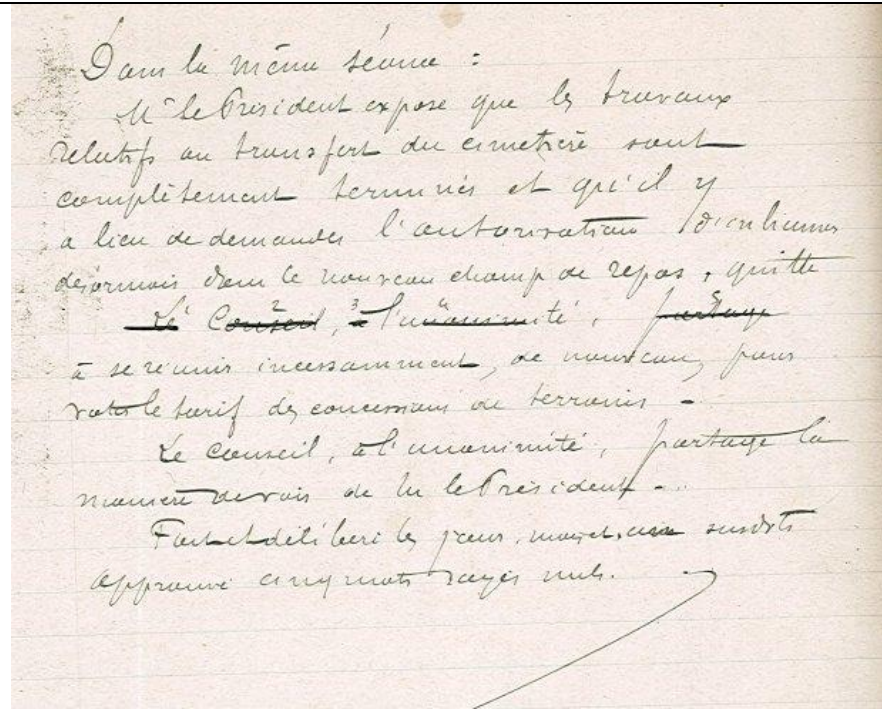 Dans la même séance :
Mr le Président expose que les travaux
relatifs au transfert du cimetière sont
complètement terminés et qu'il y
a lieu de demander l'autorisation d'inhumer
désormais dans le nouveau champ de repos, quitte
Le Conseil, à l'unanimité, partage
à se réunir incessamment, de nouveau, pour
voter le tarif des concessions de terrains -
Le Conseil, à l'unanimité, partage la
manière de voir de Mr le Président -
Fait et délibéré les jour, mois et an susdits
Approuvé cinq mots rayés nuls.